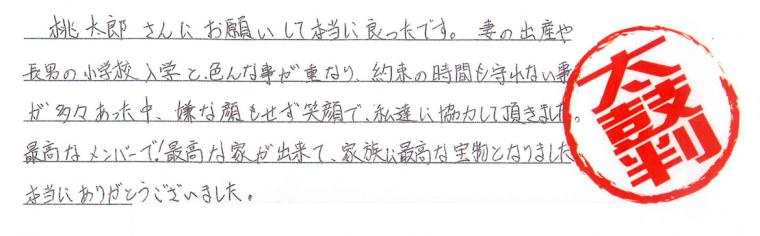 桃太郎さんにお願いして本当に良ったです。妻の出産や
長男の小学校入学と、色んな事が重なり、約束の時間も守れない事
が多々あった中、嫌な顔もせず笑顔で、私達に協力して頂きました。
最高なメンバーで!最高な家が出来て、家族に最高な宝物となりました
本当にありがとうございました。
太鼓判